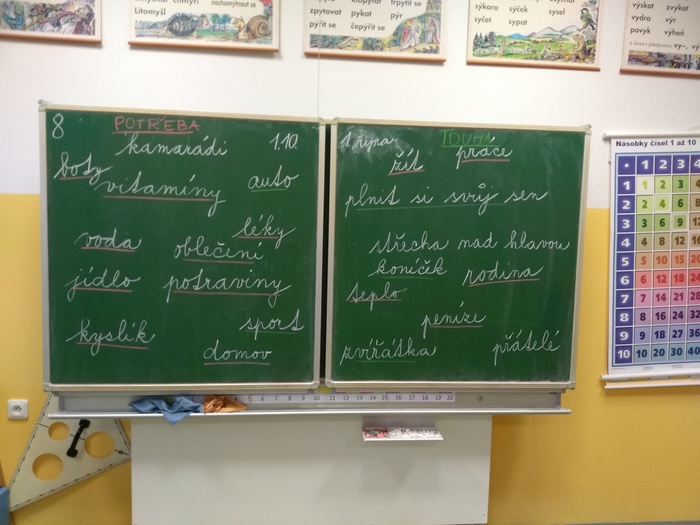 Litomyšl
zpytovat pykat pýr
pýřit se čepýřit se
sýkora sýček sysel
syčet sypat
výskat zvykat
vydra výr
pavyk výheň
8 POTŘEBA 1.10.
kamarádi
boty vitamíny auto
léky
voda oblečení
jídlo potraviny
kyslík sport
domov
1. října TOUHA
žít práce
plnit si svůj sen
střecha nad hlavou
koníček rodina
teplo
peníze
zvířátka přátelé
Násobky čísel 1 až 10
• 1 2 3 4
1 1 2 3 4
2 2 4 6 8
3 3 6 9 12
4 4 8 12 16
5 5 10 15 20
6 6 12 18 24
7 7 14 21 28
8 8 16 24 32
9 9 18 27 36
10 10 20 30 40
5 6 7 8 9 10 11 12 13 14 15 16 17 18 19 20